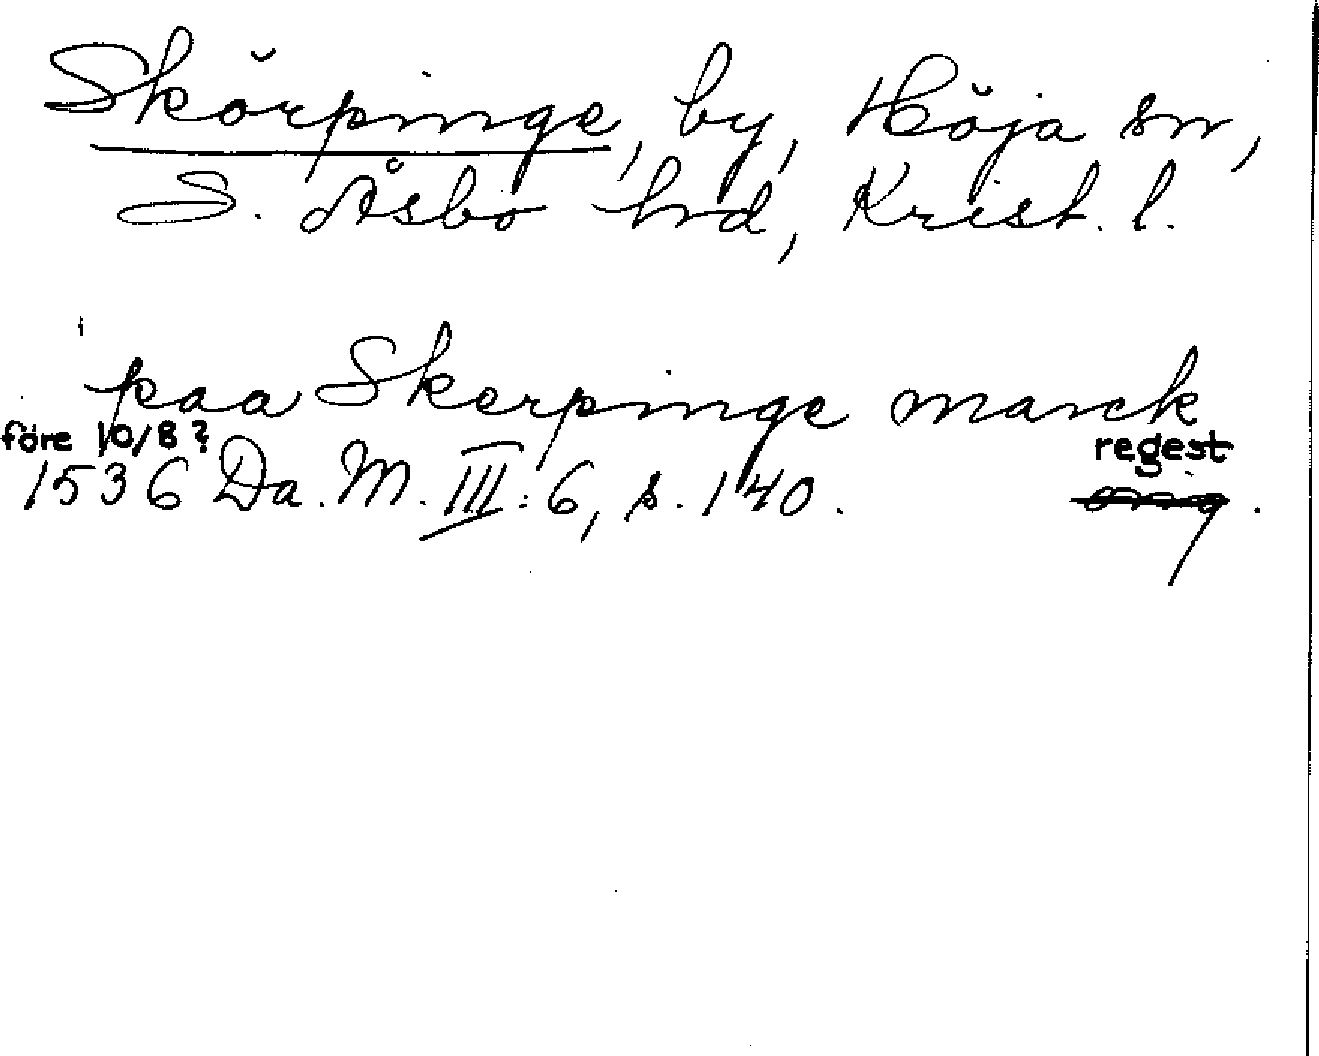 Skörpinge, by, Höja sn,
S. Åsbo hrd, Krist. l.
paa Skerpinge marck
före 10/8? regest
1536 Da. M. III: 6, s. 140. orig.